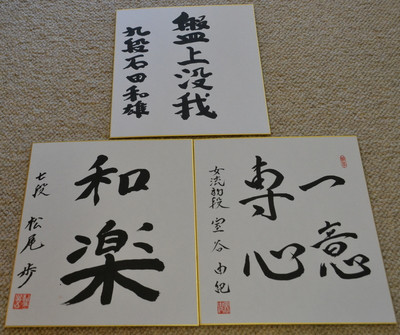 盤上没我
九段石田和雄
和楽
七段 松尾歩
一意
専心
女流初段 室谷由紀